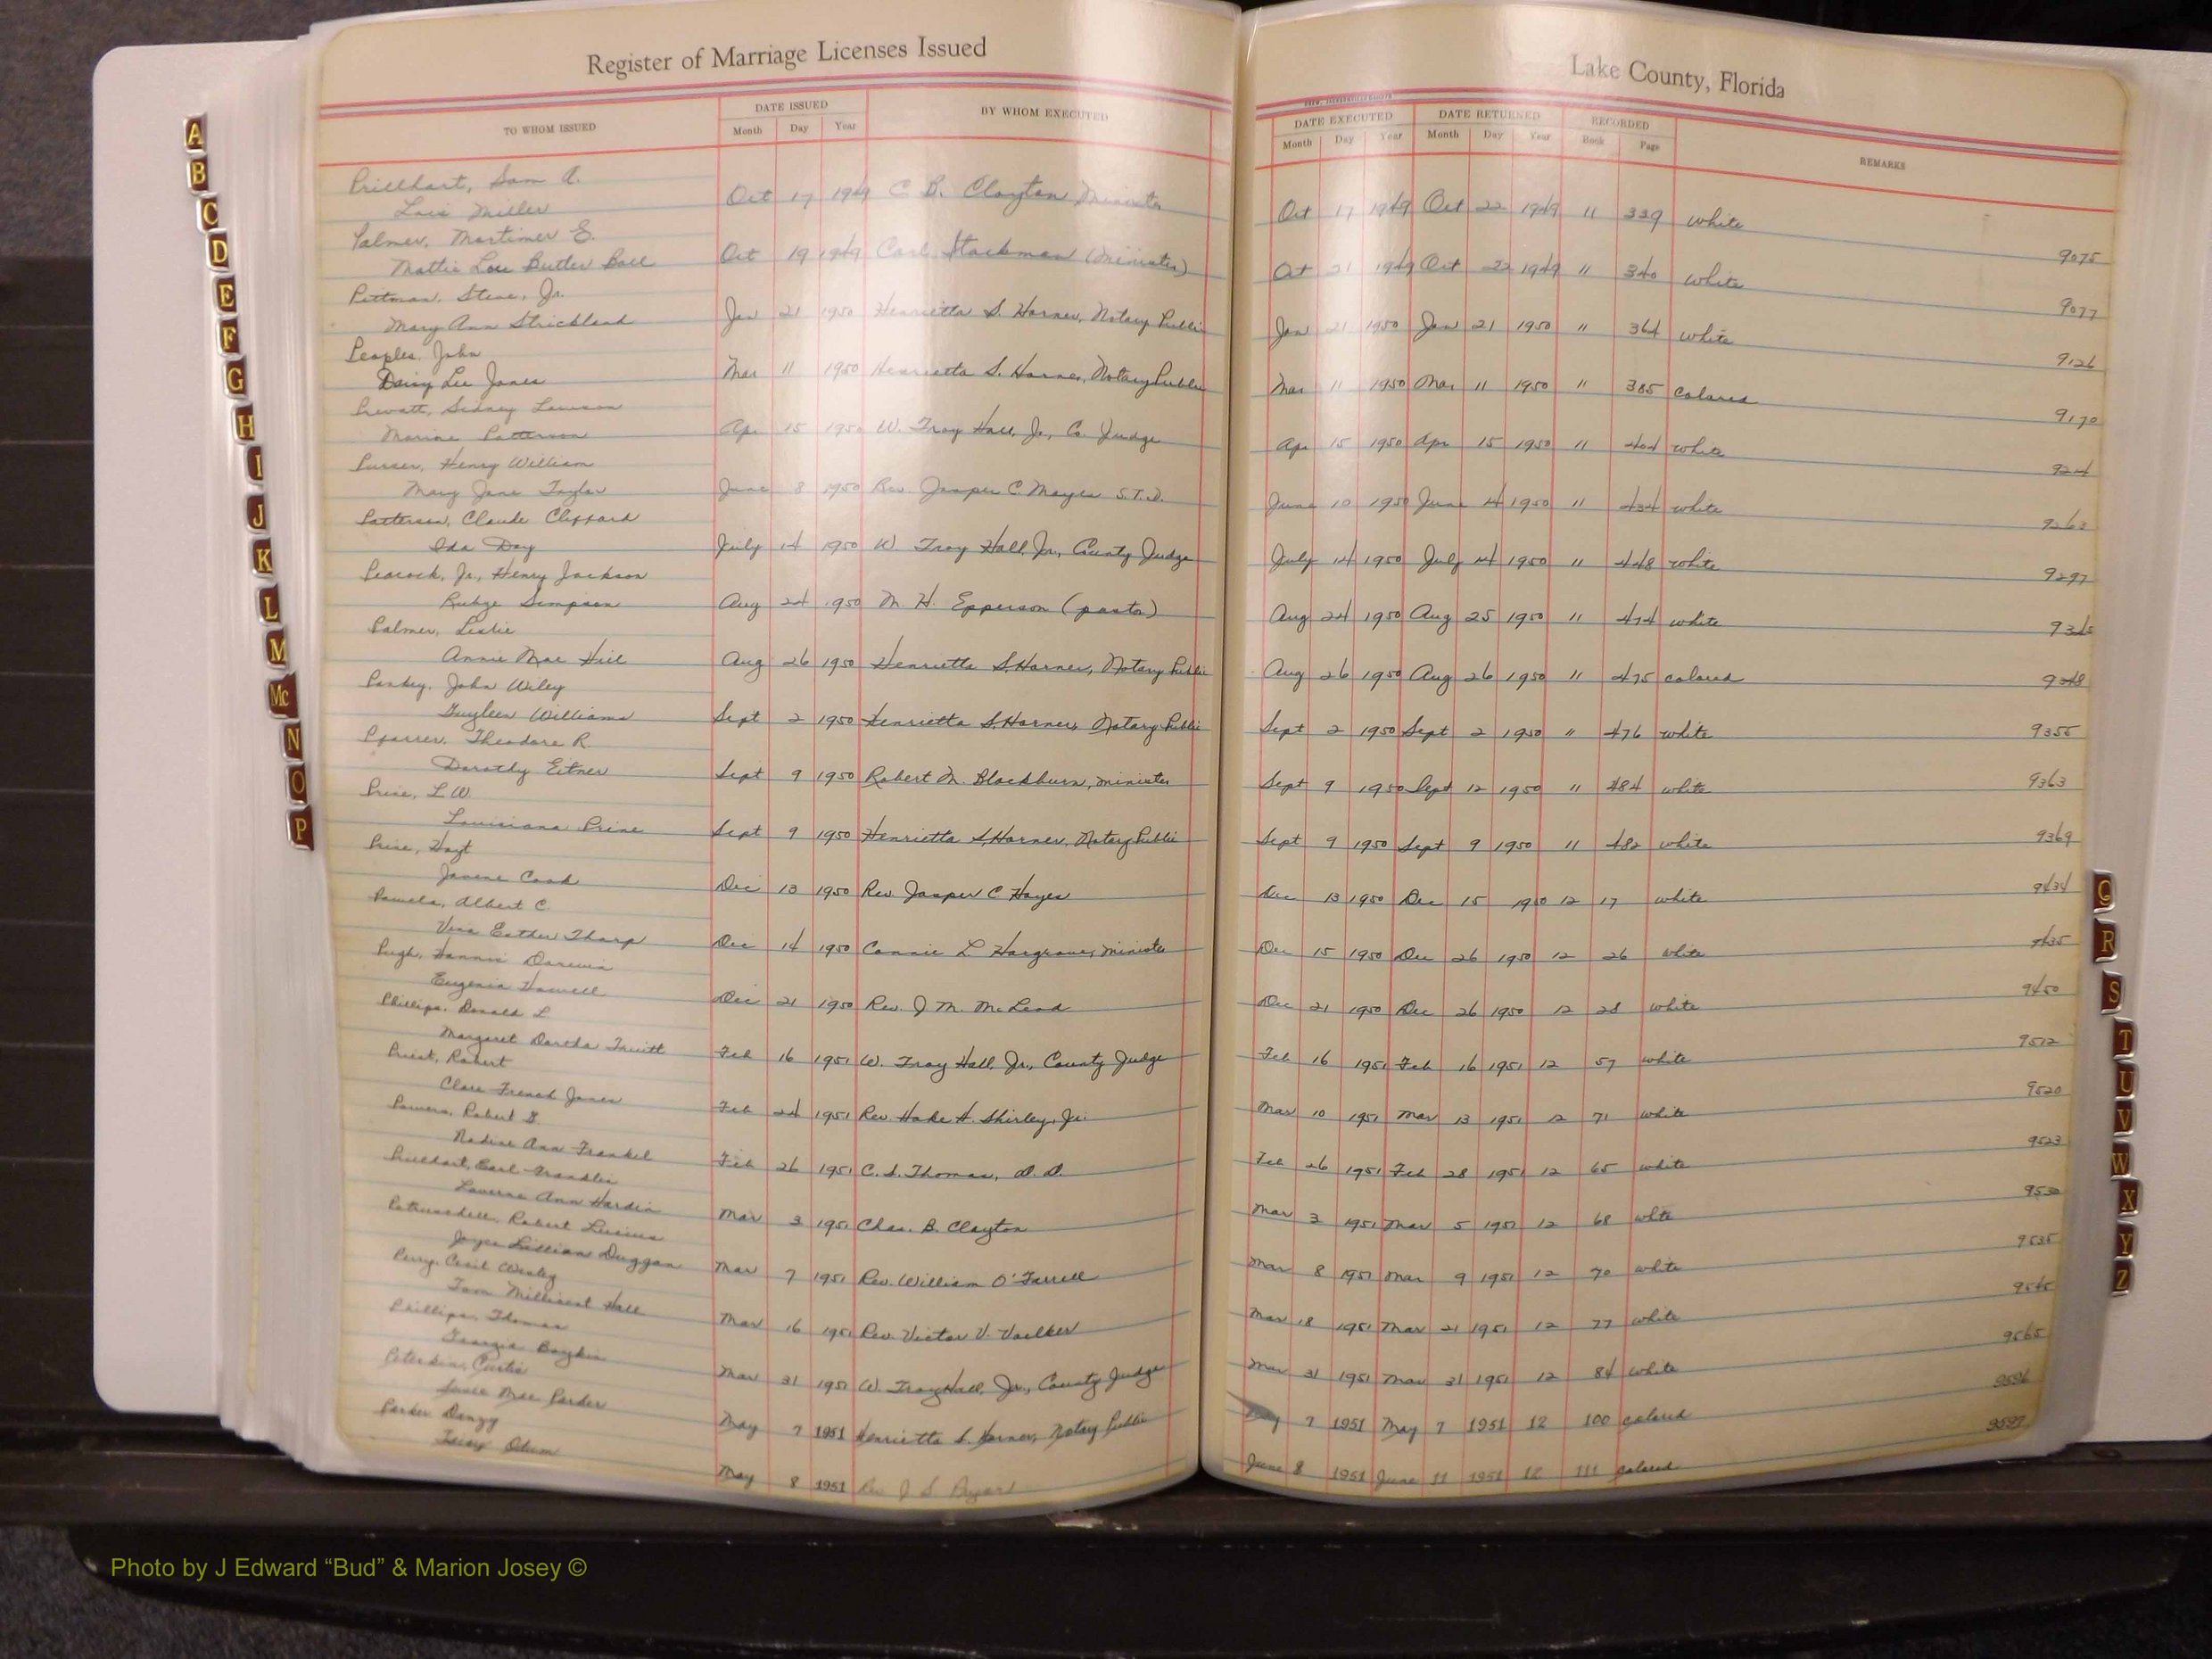 Register of Marriage Licenses Issued
Lake County, Florida
TO WHOM ISSUED
DATE ISSUED
Month Day Year
BY WHOM EXECUTED
DATE EXECUTED
Month Day Year
DATE RETURNED
Month Day Year
RECORDED
Book Page
REMARKS
Prillhart, Sam A.
Lois Miller
Oct 17 1949 C. B. Clayton Minister Oct 17 1949 Oct 22 1949 11 339 white
9075
Palmer, Mortimer E.
Mattie Lou Butler Ball
Oct 19 1949 Carl Stackman (Minister) Oct 21 1949 Oct 22 1949 11 340 white
9077
Pittman, Steve, Jr.
Mary Ann Strickland
Jan 21 1950 Henrietta S. Harner, Notary Public Jan 21 1950 Jan 21 1950 11 364 white
9126
Peoples, John
Daisy Lee Jones
Mar 11 1950 Henrietta S. Harner, Notary Public Mar 11 1950 Mar 11 1950 11 385 colored
9170
Prevatt, Sidney
Patterson
Apr 15 1950 W. Troy Hall, Jr., Co. Judge Apr 15 1950 Apr 15 1950 11 404 white
Purser, Henry William
Mary Jane Taylor
June 8 1950 Rev Jasper C. Mayes S.T.D. June 10 1950 June 14 1950 11 434 white
9263
Patterson, Claude Clifford
Ida Day
July 14 1950 W. Troy Hall, Jr., County Judge July 14 1950 July 14 1950 11 448 white
9297
Peacock, Jr., Henry Jackson
Simpson
Aug 24 1950 M. H. Epperson (pastor) Aug 24 1950 Aug 25 1950 11 474 white
Palmer, Leslie
Annie Mae Hill
Aug 26 1950 Henrietta S. Harner, Notary Public Aug 26 1950 Aug 26 1950 11 475 colored
9348
John Wiley
Williams
Sept 2 1950 Henrietta S. Harner, Notary Public Sept 2 1950 Sept 2 1950 11 476 white
9355
Theodore R.
Dorothy Eitner
Sept 9 1950 Robert M. Blackburn, minister Sept 9 1950 Sept 12 1950 11 484 white
9363
Prine, L. W.
Louisiana Prine
Sept 9 1950 Henrietta S. Harner, Notary Public Sept 9 1950 Sept 9 1950 11 482 white
9369
Prine, Hoyt
Cook
Dec 13 1950 Rev. Jasper C Hayes Dec 13 1950 Dec 15 1950 12 17 white
9434
Albert C.
Esther Tharp
Dec 14 1950 Connie L. Hargrove, minister Dec 15 1950 Dec 26 1950 12 26 white
9435
Pugh,
Eugenia Howell
Dec 21 1950 Rev. J. M. McLeod Dec 21 1950 Dec 26 1950 12 28 white
9450
Phillips, Donald L.
Margaret Truitt
Feb 16 1951 W. Troy Hall, Jr., County Judge Feb 16 1951 Feb 16 1951 12 57 white
9512
Priest, Robert
French Jones
Feb 24 1951 Rev Hake H. Shirley, Jr. Mar 10 1951 Mar 13 1951 12 71 white
9520
Powers, Robert G.
Nadine Ann Frankel
Feb 26 1951 C. S. Thomas, D. D. Feb 26 1951 Feb 28 1951 12 65 white
9523
Prillhart, Earl Franklin
Laverne Ann Hardin
Mar 3 1951 Chas. B. Clayton Mar 3 1951 Mar 5 1951 12 68 white
9530
Robert
Joyce Lillian Duggan
Mar 7 1951 Rev. William O'Farrell Mar 8 1951 Mar 9 1951 12 70 white
9535
Perry, Cecil Wesley
Millicent Hall
Mar 16 1951 Rev. Victor V. Voelker Mar 18 1951 Mar 21 1951 12 77 white
9545
Phillips, Thomas
Georgia Boykin
Mar 31 1951 W. Troy Hall, Jr., County Judge Mar 31 1951 Mar 31 1951 12 84 white
9565
Peterkin, Curtis
Susie Mae Parker
May 7 1951 Henrietta S. Harner, Notary Public May 7 1951 May 7 1951 12 100 colored
9596
Parker
Odum
May 8 1951 Rev J S June 8 1951 June 11 1951 12 111 colored
9597
A
B
C
D
E
F
G
H
I
J
K
L
M
Mc
N
O
P
Q
R
S
T
U
V
W
X
Y
Z
Photo by J Edward “Bud” & Marion Josey ©